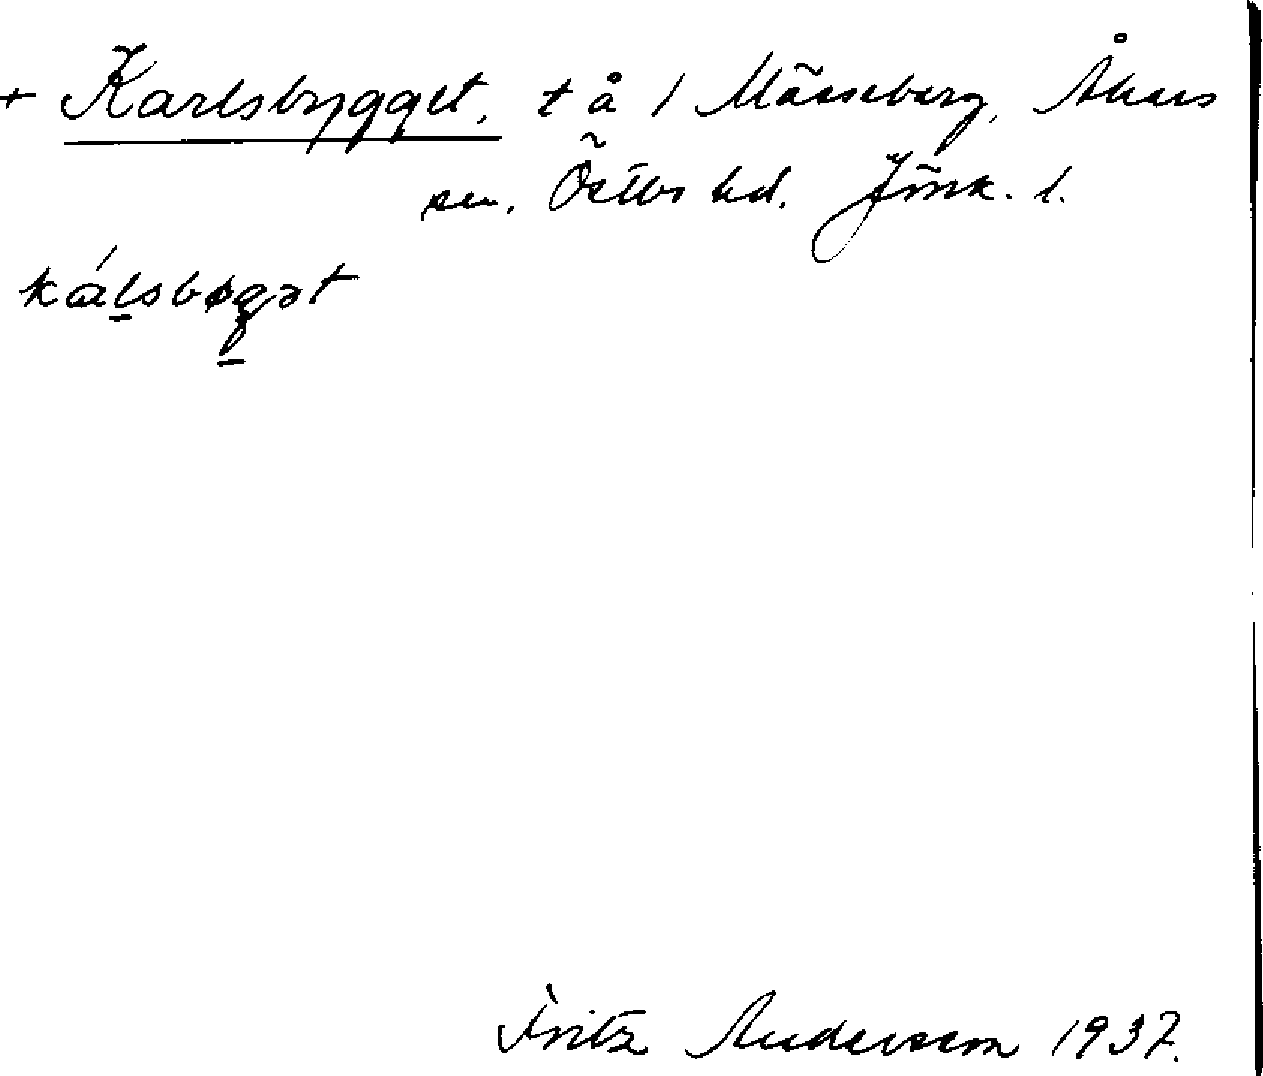 + Karlsbygget, t å 1 Mässeberg, Åkers
sn. Östbo hd. Jönk. l.
kálsbøgət
Fritz Andersson 1937.